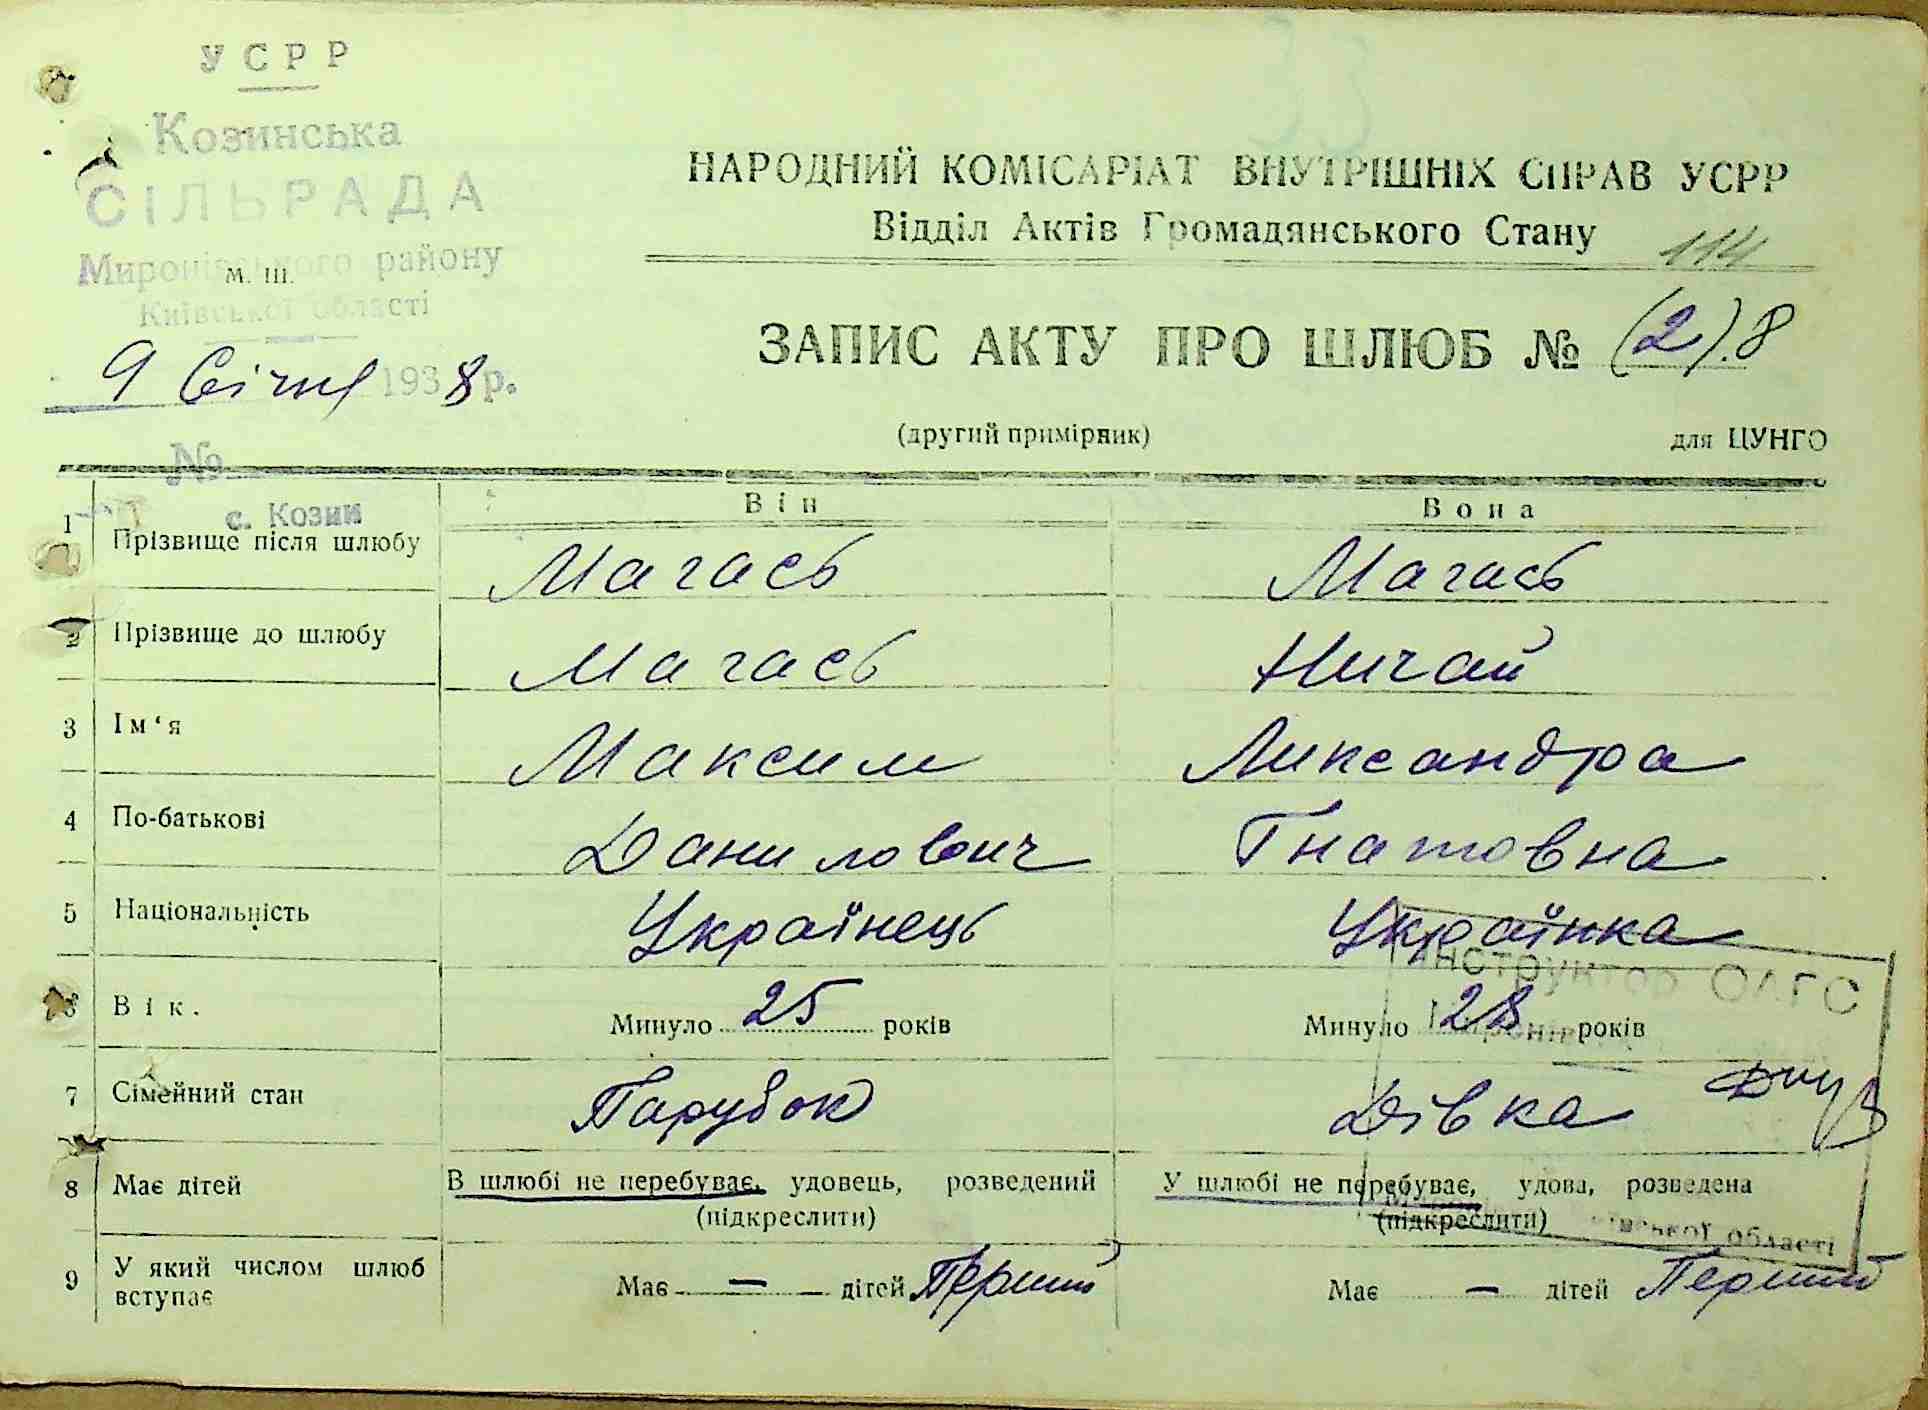 УСРР
Козинська
СІЛЬРАДА
Миронівського району
м. ш.
Київської області
9 Січня 1938 р.
№
с. Козин
33
НАРОДНИЙ КОМІСАРІАТ ВНУТРІШНІХ СПРАВ УСРР
Відділ Актів Громадянського Стану
114
ЗАПИС АКТУ ПРО ШЛЮБ № (2).8
(другий примірник) для ЦУНГО
Він Вона
1 Прізвище після шлюбу Магась Магась
2 Прізвище до шлюбу Магась Ничай
3 Ім‘я Максим Лиександра
4 По-батькові Данилович Гнатовна
5 Національність Українець Українка
Інструктор ОАГС
6 Вік. Минуло 25 років Минуло 28 років
7 Сімейний стан Парубок Дівка
8 Має дітей В шлюбі не перебуває, удовець, розведений У шлюбі не перебуває, удова, розведена
(підкреслити) (підкреслити)
області
9 У який числом шлюб вступає Має — дітей Перший Має — дітей Перший